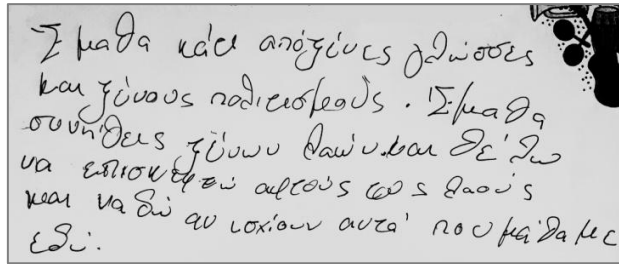 Έμαθα κάτι από ξένες γλώσσες
και ξένους πολιτισμούς. Έμαθα
συνήθεις ξένων λαών και θέλω
να επισκεφτώ αυτούς τους λαούς
και να δω αν ισχύουν αυτά που μάθαμε
εδώ.